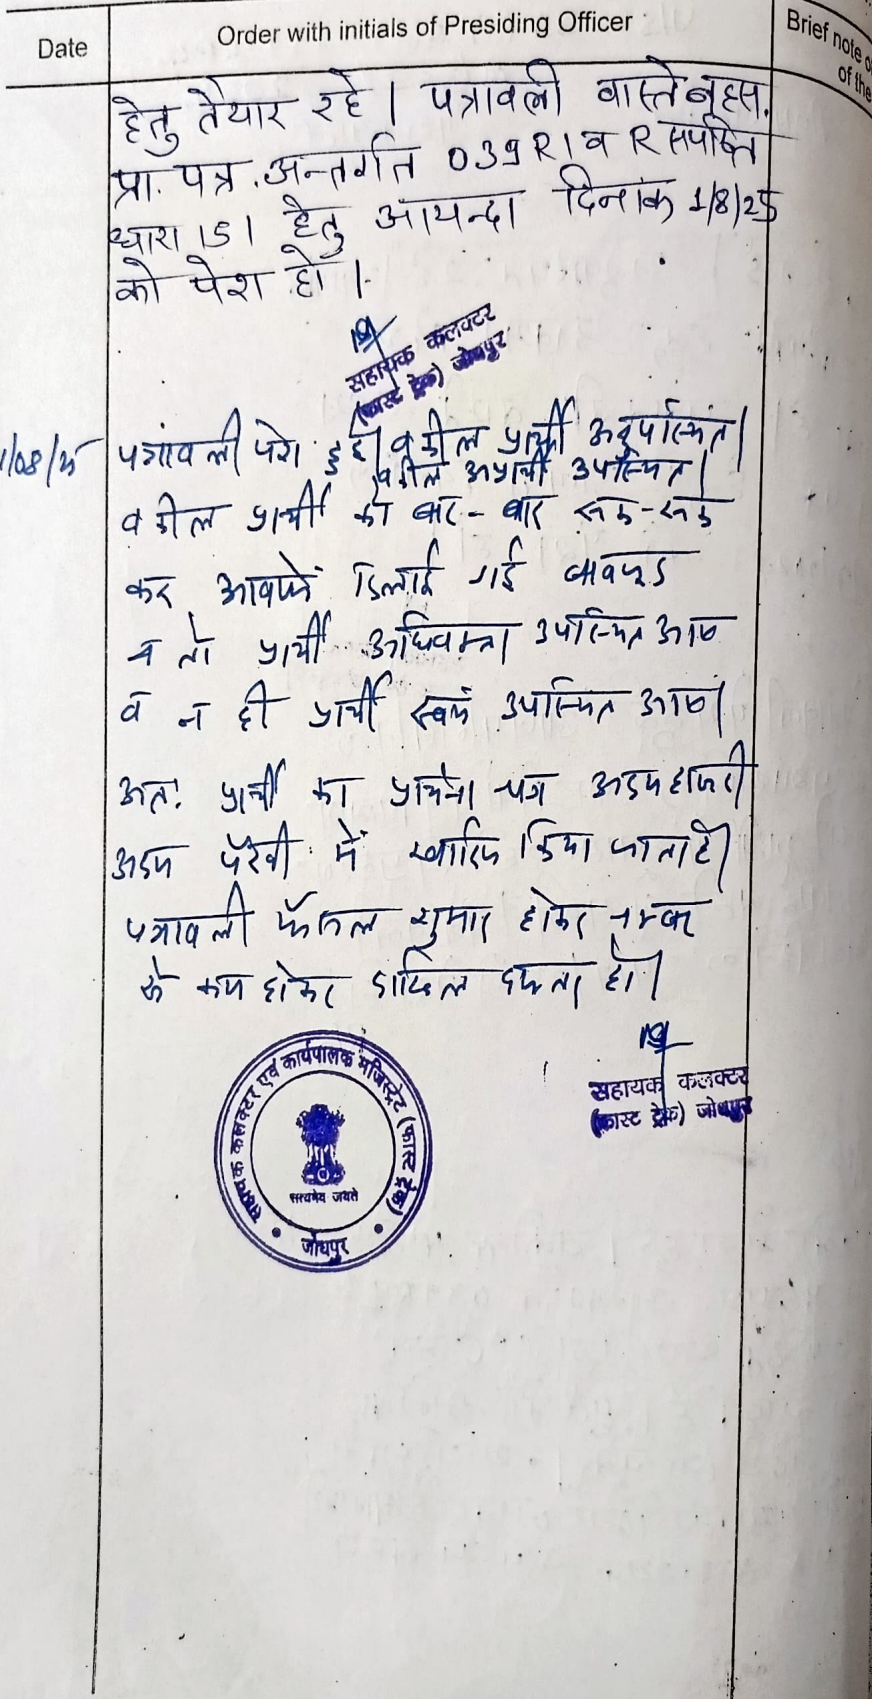 Date
Order with initials of Presiding Officer
Brief note o
of the
हेतु तैयार रहे । पत्रावली वास्ते बहस
प्रा. पत्र अन्तर्गत 039 R1 व R सपठित
धारा 151 हेतु आयन्दा दिनांक 1/8/25
को पेश हो ।
सहायक कलक्टर
(फास्ट ट्रेक) जोधपुर
1/08/25
पत्रावली पेश हुई। वकील प्रार्थी अनुपस्थित।
वकील अप्रार्थी उपस्थित।
वकील प्रार्थी को बार-बार रूक-रूक
कर आवाजें दिलाई गई बावजूद
न तो प्रार्थी अधिवक्ता उपस्थित आए
व न ही प्रार्थी स्वयं उपस्थित आए।
अतः प्रार्थी का प्रार्थना पत्र अदम हाजरी
अदम पैरवी में खारिज किया जाता है।
पत्रावली फैसल शुमार होकर नम्बर
से कम होकर दाखिल दफ्तर हो।
सहायक कलक्टर
(फास्ट ट्रेक) जोधपुर
सहायक कलक्टर एवं कार्यपालक मजिस्ट्रेट (फास्ट ट्रेक)
सत्यमेव जयते
जोधपुर